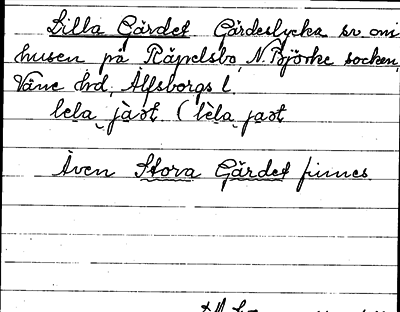 Lilla Gärdet Gärdeslycka sv om
husen på Räpelsbo, N. Björke socken,
Väne hd, Älfsborgs l.
lela jàət (lèla jaət
Även Stora Gärdet finnes